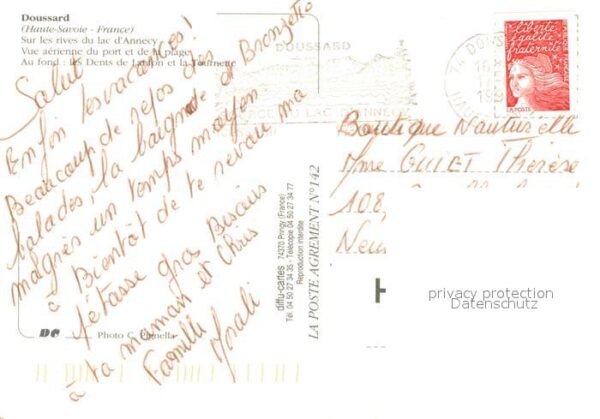 Doussard
(Haute-Savoie - France)
Sur les rives du lac d'Annecy
Vue aérienne du port et de la plage
Au fond : les Dents de Lanfon et la Tournette
Salut
Enfin les vacances !
Beaucoup de repos des
balades, la baignade et Bronzette
malgrès un temps moyen
à Bientôt de te revoir ma
fétasse gros Bisous
à ta maman et Chris
Famille
DC
Photo C.
diffu-cartes 74370 Pringy (France)
Tél 04 50 27 34 35 - Télécopie 04 50 27 34 77
Reproduction interdite
LA POSTE AGREMENT N° 142
DOUSSARD
LAC D'ANNECY
74 DOUSSARD
liberté
égalité
fraternité
LA POSTE
Boutique Naturelle
Mme GUIET Thérèse
108,
H
privacy protection
Datenschutz